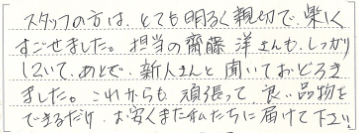 スタッフの方は、とても明るく親切で、楽しく
すごせました。担当の齋藤 洋さんも、しっかり
していて、あとで、新人さんと聞いておどろき
ました。これからも頑張って、良い品物を
できるだけ、お安くまた私たちに届けて下さい